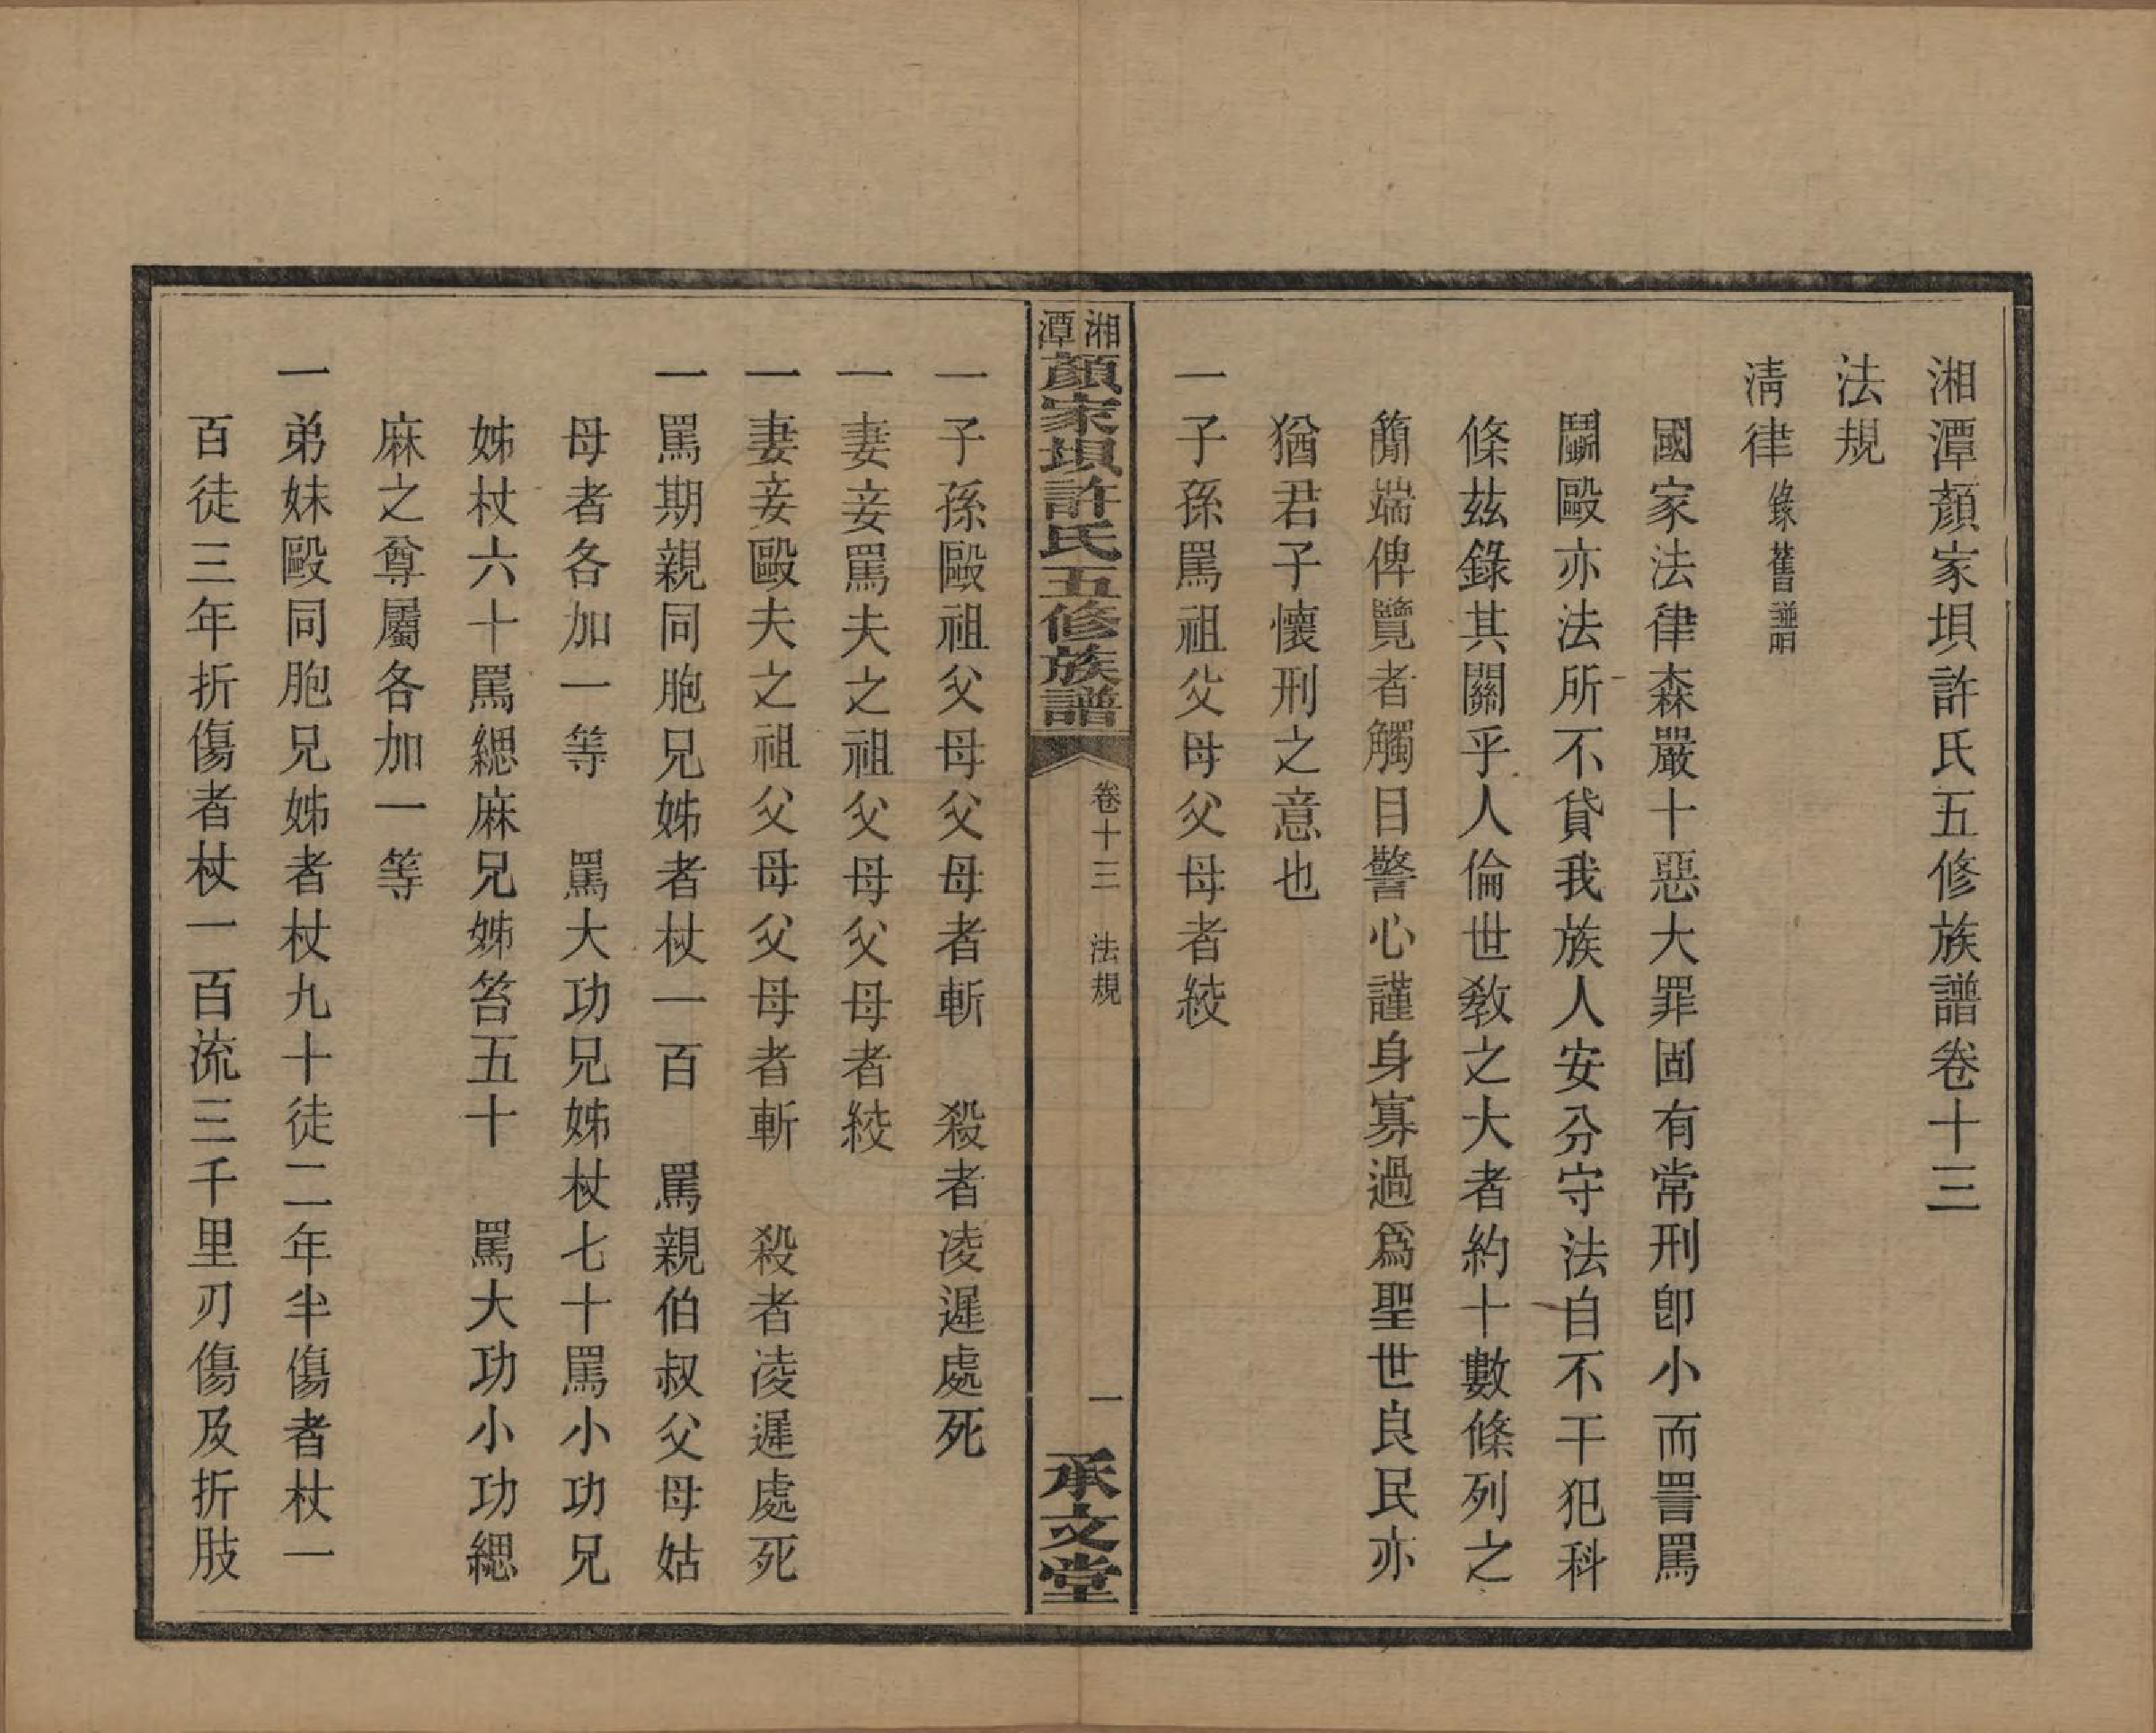 湘潭顏家垻許氏五修族譜卷十三
法規
淸律錄舊譜
國家法律森嚴十惡大罪固有常刑卽小而詈罵
鬭毆亦法所不貸我族人安分守法自不干犯科
條茲錄其關乎人倫世敎之大者約十數條列之
簡端俾覽者觸目警心謹身寡過爲聖世良民亦
猶君子懷刑之意也
一子孫罵祖父母父母者絞
湘潭顏家垻許氏五修族譜
卷十三 法規
一
承文堂
一子孫毆祖父母父母者斬 殺者凌遲處死
一妻妾罵夫之祖父母父母者絞
一妻妾毆夫之祖父母父母者斬 殺者凌遲處死
一罵期親同胞兄姊者杖一百 罵親伯叔父母姑
母者各加一等 罵大功兄姊杖七十罵小功兄
姊杖六十罵緦麻兄姊笞五十 罵大功小功緦
麻之尊屬各加一等
一弟妹毆同胞兄姊者杖九十徒二年半傷者杖一
百徒三年折傷者杖一百流三千里刃傷及折肢